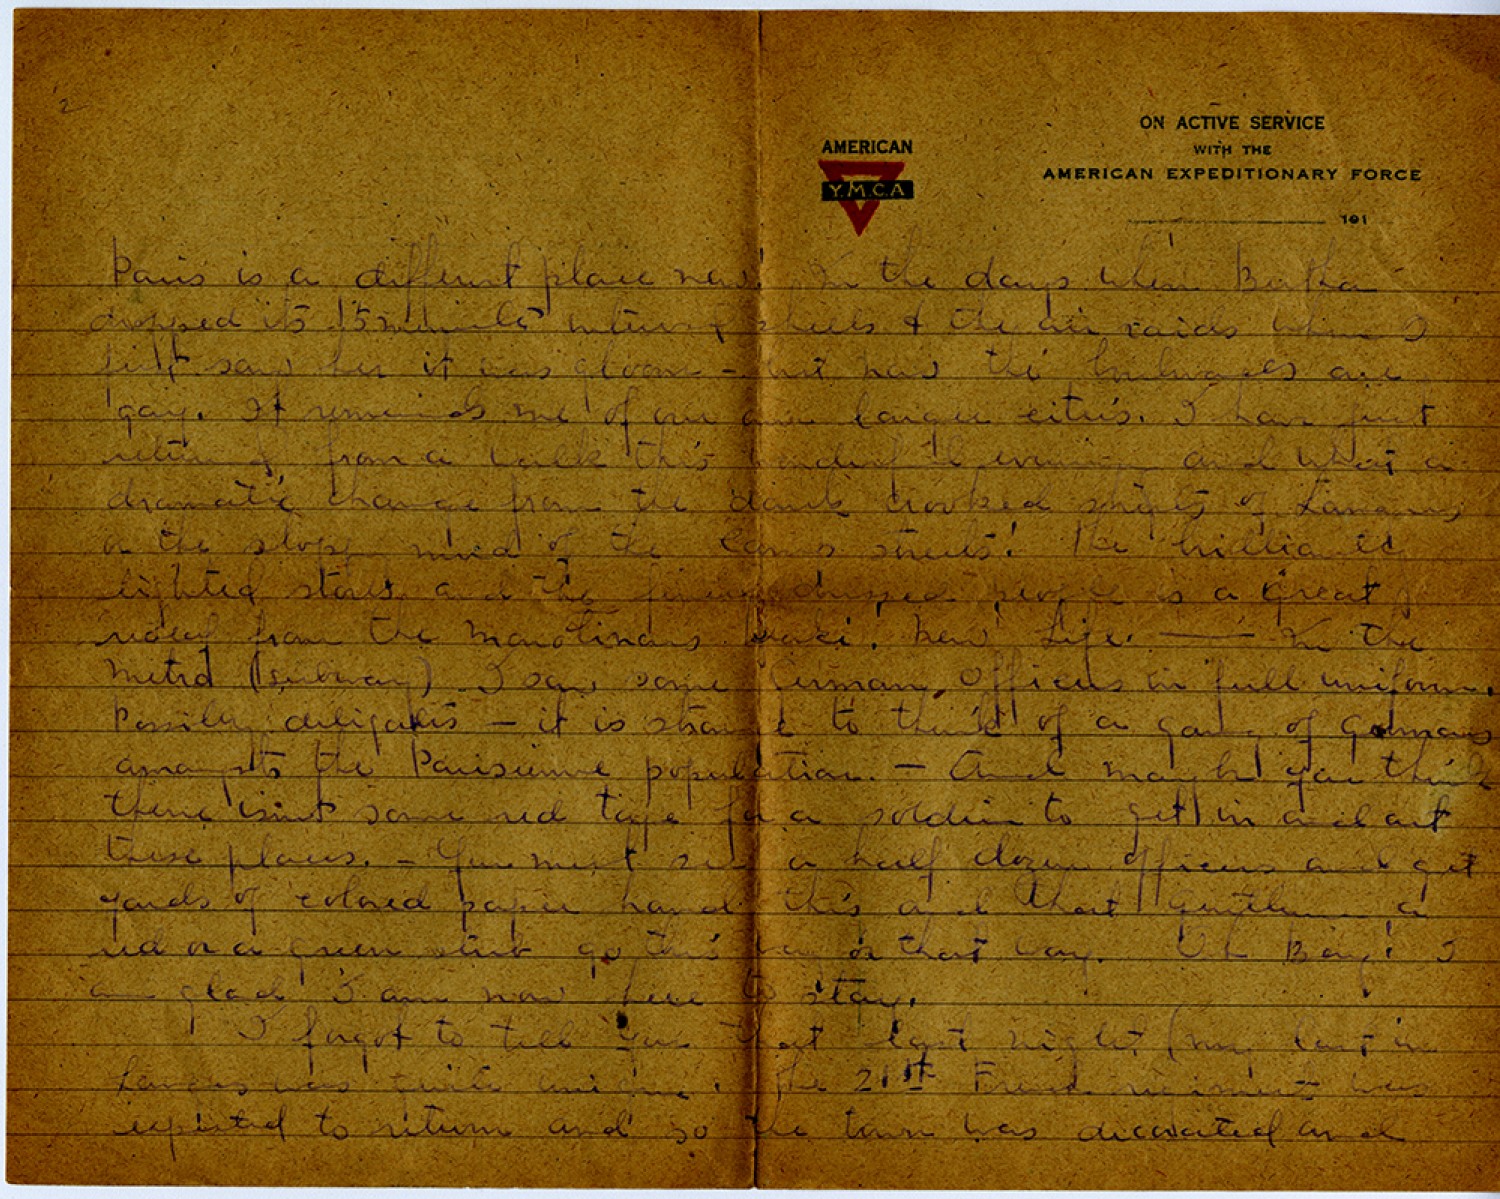 2
AMERICAN
Y.M.C.A
ON ACTIVE SERVICE
WITH THE
AMERICAN EXPEDITIONARY FORCE
191
Paris is a different place now. In the days when Bertha
dropped its 15 minute interval shells & the air raids when I
first saw her it was gloom - but now the are
gay. It reminds me of our own larger cities. I have just
returned from a walk this wonderful evening and what a
dramatic change from the dark crooked streets of Langres
or the sloppy mud of the camp streets! The brilliantly
lighted stores and the dressed people is a great
relief from the monotinous khaki. New Life. — In the
Metro (subway) I saw some German officers in full uniform.
Possibly deligates - it is strange to think of a gang of Germans
amongsts the Parisienne population. - And maybe you think
there isint some red tape for a soldier to get in and out
these places. - You must see a half dozen officers and get
yards of colored paper hand this and that gentleman a
red or a green stub go this way or that way. Oh Boy! I
am glad I am now here to stay.
I forgot to tell you that last night (my last in
Langres was quite unique. The 21st French regiment was
expected to return and so the town was decorated and